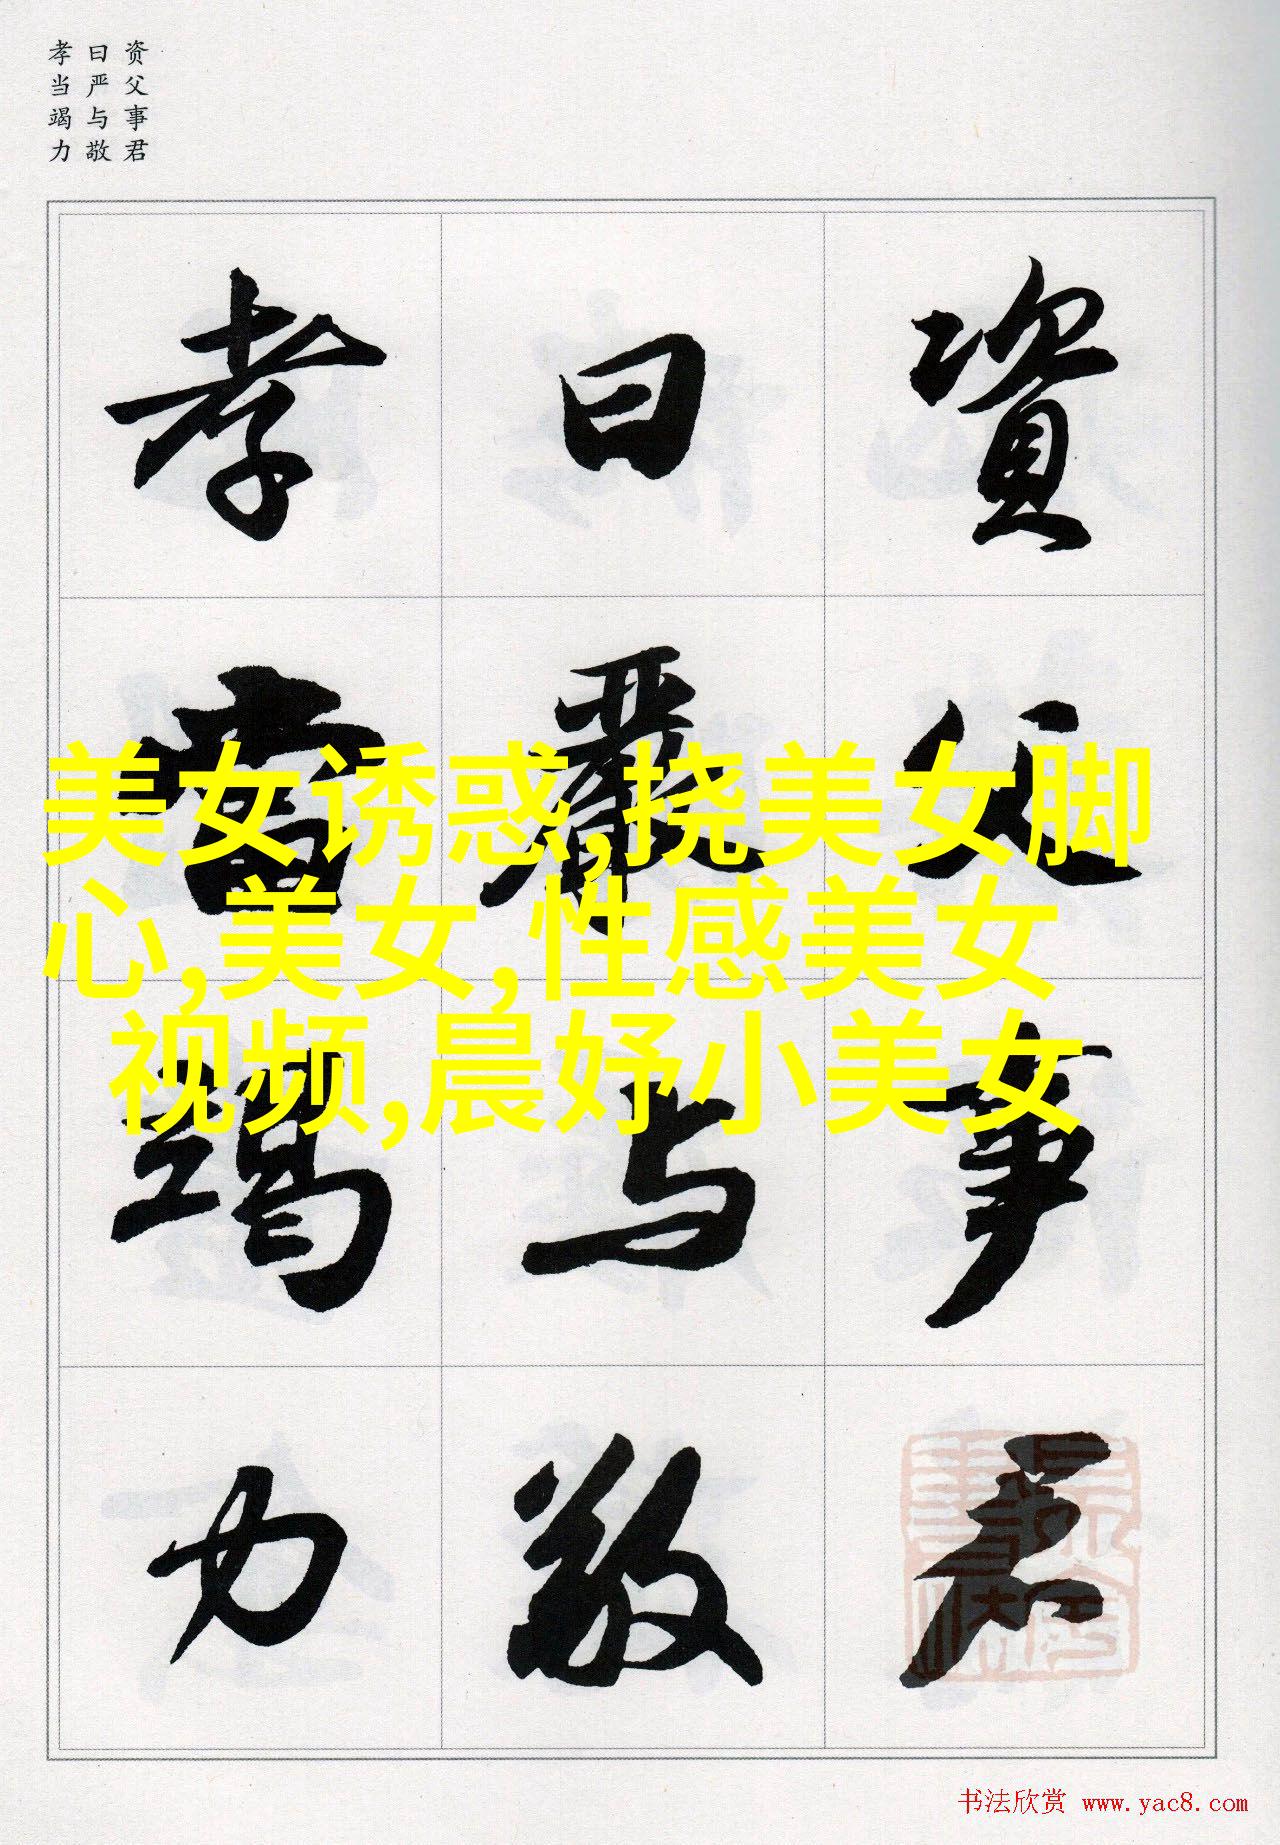 资父事君
曰严与敬
孝当竭力
資父事君
曰嚴与敬
孝當竭力
美女诱惑,挠美女脚
心,美女,性感美女
视频,晨妤小美女
书法欣赏 www.yac8.com